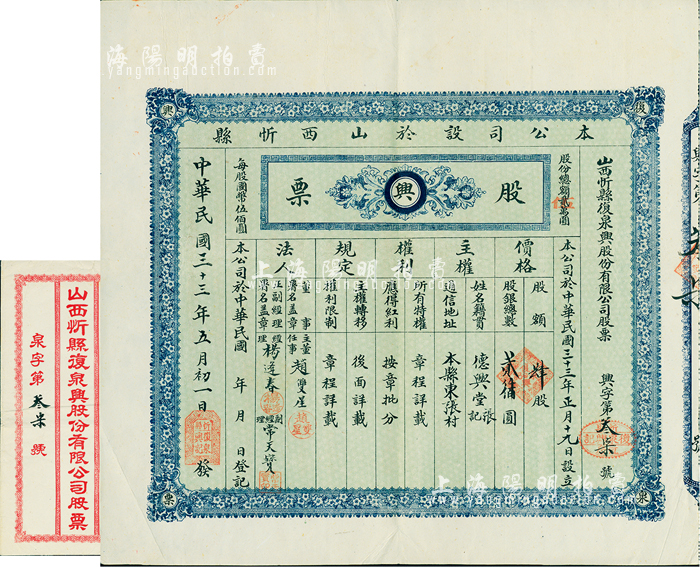 上海陽明拍賣
www.yangmingauction.com
復
興
泉
票
本公司設於山西忻縣
山西忻縣復泉興股份有限公司股票
興字第叁柒號
本公司於中華民國三十三年正月十九日設立
股份總額貳萬圓
股興票
每股國幣伍佰圓
價格
股額 肆股
股銀總數 貳仟圓
主權
姓名籍貫 德興堂張記
通信地址 本縣東張村
權利
所有特權 章程詳載
應得紅利 按章批分
規定
主權轉移 後面詳載
權利限制 章程詳載
法人
董事主任董事署名蓋章 趙
正副經理署名蓋章 經理 楊逢春 副經理 常天
本公司於中華民國 年 月 日登記
中華民國三十三年五月初一日發
山西忻縣復泉興股份有限公司股票
泉字第叁柒號